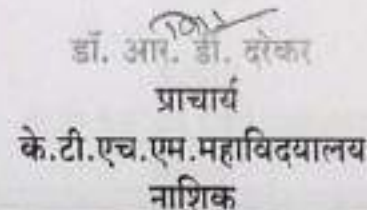 डॉ. आर. डी. दरेकर
प्राचार्य
के.टी.एच.एम.महाविदयालय
नाशिक